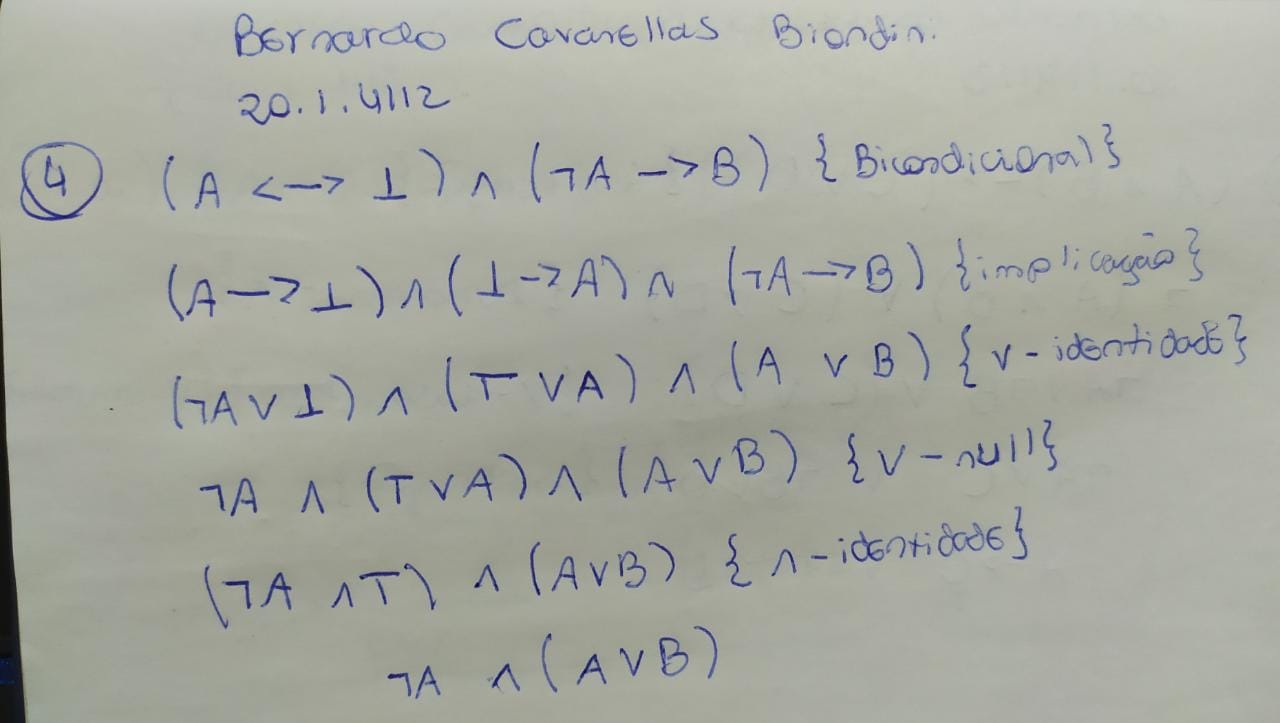 Bernardo Cavanellas Biondin.
20.1.4112
4 (A <—> ⊥) ∧ (¬A —> B) {Bicondicional}
(A —> ⊥) ∧ (⊥ —> A) ∧ (¬A —> B) {implicação}
(¬A ∨ ⊥) ∧ (T ∨ A) ∧ (A ∨ B) {∨ - identidade}
¬A ∧ (T ∨ A) ∧ (A ∨ B) {∨ - null}
(¬A ∧ T) ∧ (A ∨ B) {∧ - identidade}
¬A ∧ (A ∨ B)